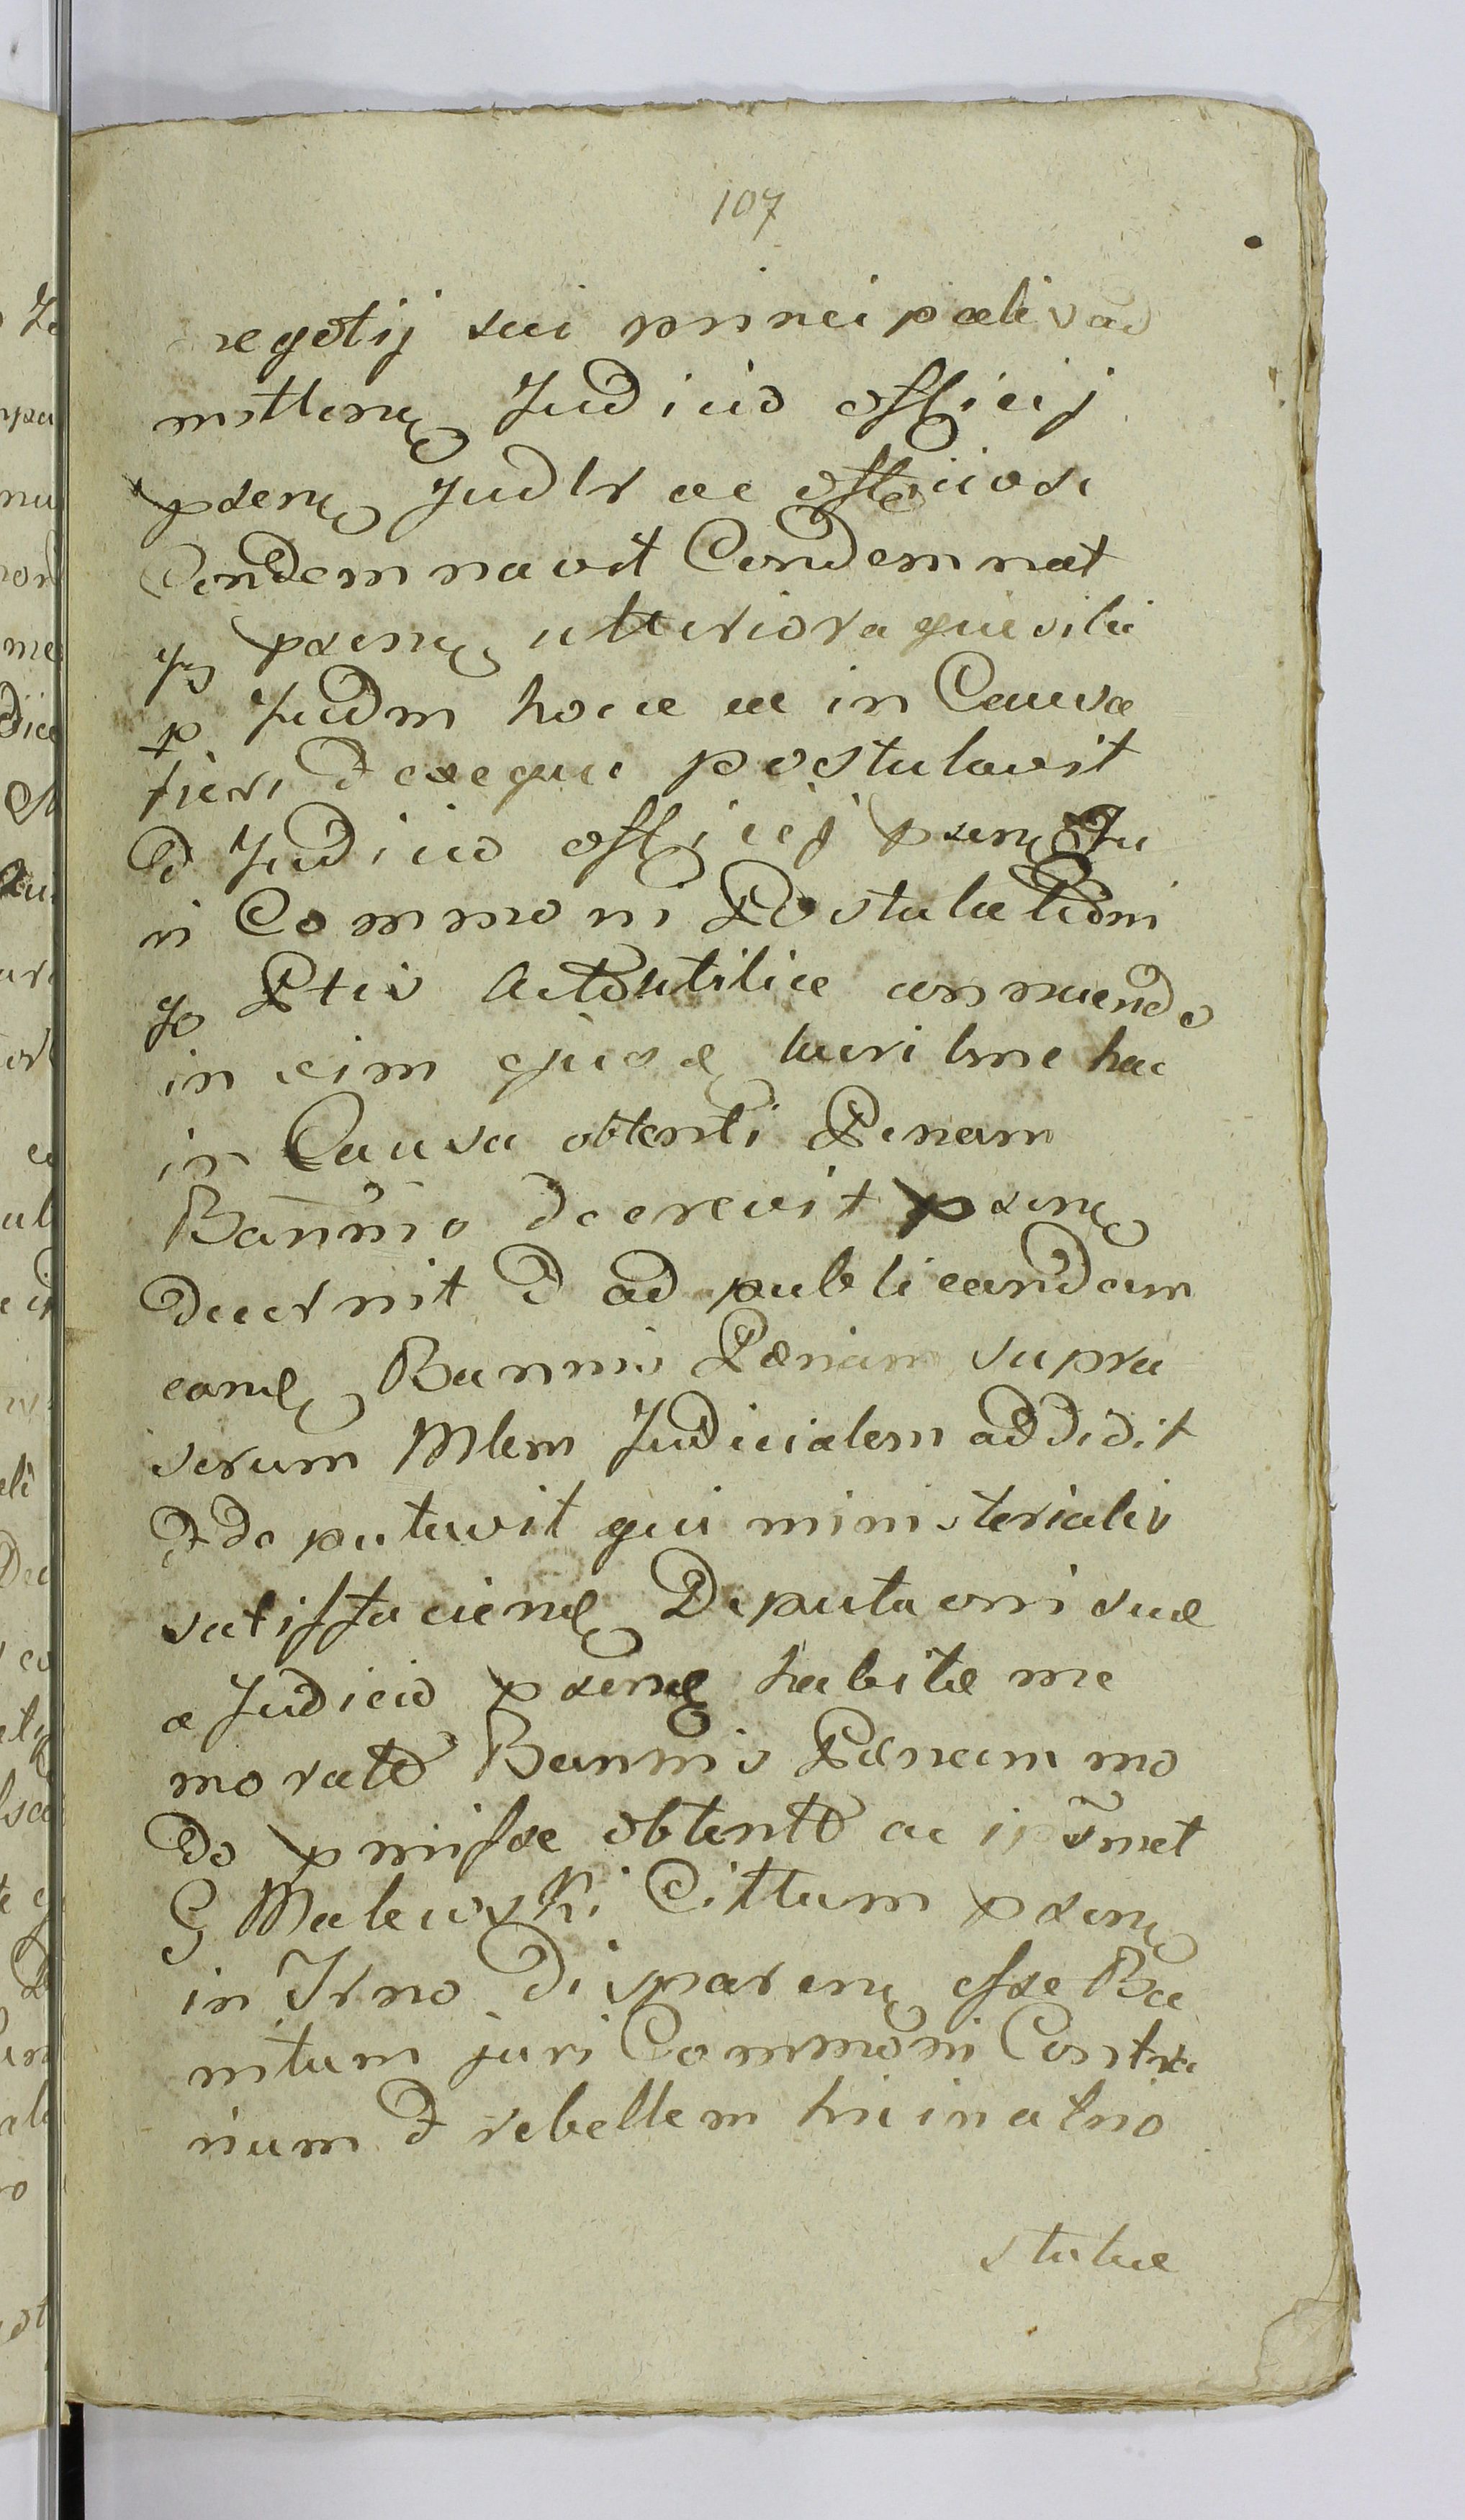 107
negotij sui principalis ad
mitten Judicio officij
psen Judlr ac officiose
Condemnavit Condemnat
psen ulteriora quevili
p Judm hocce ac in Causa
fieri d exequi postulavit
Et Judicio officij psen Ju
ri Communi Postulationi
Ptis Actor utilice annuendo
in vim ejusd lucri bme hac
in Causa obtenti Penam
Bannio decrevit psen
decernit Et ad publicandam
eand Bannis Pœnam supra
scrum Mlem Judicialem addidit
Et deputavit qui ministerialis
satisffaciend Deputaoni suæ
a Judicio psend habitæ me
morato Bannis Pœnam mo
do pmisse obtento ac ipsmet
G Malewski Cittum psen
in Trno disparen esse Ba
nitum juri Communi Contra
rium Et rebellem hic in atrio
stubæ